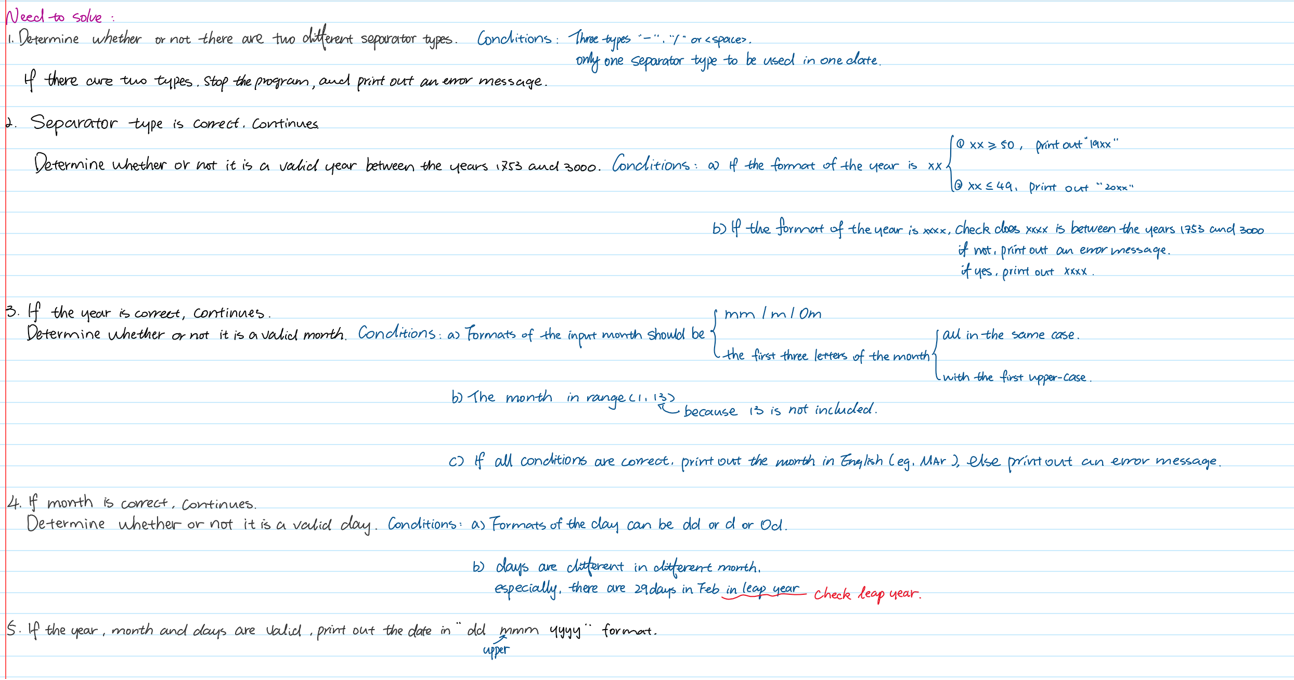 Need to solve :
1. Determine whether or not there are two different separator types. Conditions: Three types "-", "/" or <space>.
only one separator type to be used in one date.
If there are two types. Stop the program, and print out an error message.
2. Separator type is correct. Continues
① xx ≥ 50, print out "19xx"
Determine whether or not it is a valid year between the years 1753 and 3000. Conditions: a) If the format of the year is xx
② xx ≤ 49, print out "20xx"
b) If the format of the year is xxxx, check does xxxx is between the years 1753 and 3000
if not, print out an error message.
if yes, print out xxxx.
3. If the year is correct, continues.
mm / m / 0m
Determine whether or not it is a valid month. Conditions: a) Formats of the input month should be
all in the same case.
the first three letters of the month
with the first upper-case.
b) The month in range (1, 13)
because 13 is not included.
c) If all conditions are correct, print out the month in English (eg. Mar), else print out an error message.
4. If month is correct, continues.
Determine whether or not it is a valid day. Conditions: a) Formats of the day can be dd or d or 0d.
b) days are different in different month.
especially, there are 29 days in Feb in leap year check leap year.
5. If the year, month and days are valid, print out the date in "dd mmm yyyy" format.
upper